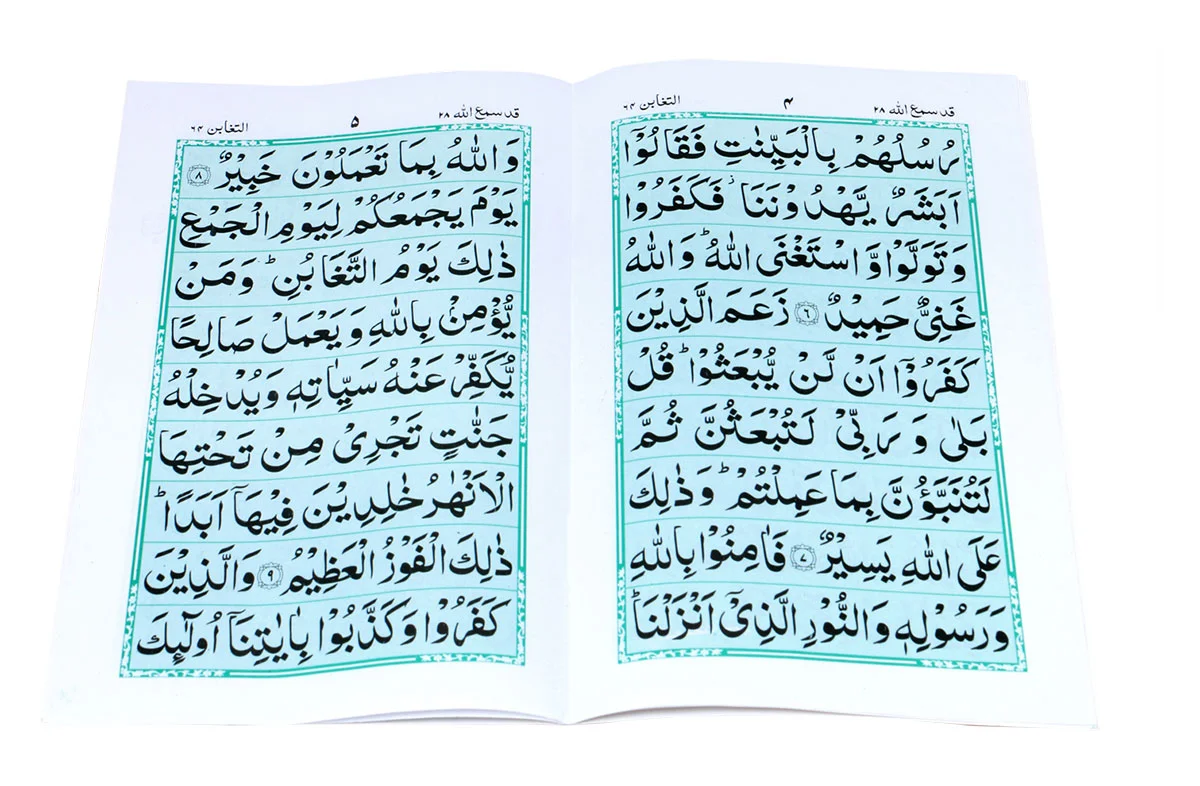 قد سمع الله ۲۸ ۴ التغابن ۶۴
رُسُلُهُمْ بِالْبَيِّنٰتِ فَقَالُوْۤا
اَبَشَرٌ يَّهْدُوْنَنَا ؗ فَكَفَرُوْا
وَتَوَلَّوْا وَّاسْتَغْنَى اللّٰهُ ؕ وَاللّٰهُ
غَنِيٌّ حَمِيْدٌ ۶ زَعَمَ الَّذِيْنَ
كَفَرُوْۤا اَنْ لَّنْ يُّبْعَثُوْا ؕ قُلْ
بَلٰى وَرَبِّيْ لَتُبْعَثُنَّ ثُمَّ
لَتُنَبَّؤُنَّ بِمَا عَمِلْتُمْ ؕ وَذٰلِكَ
عَلَى اللّٰهِ يَسِيْرٌ ۷ فَاٰمِنُوْا بِاللّٰهِ
وَرَسُوْلِهٖ وَالنُّوْرِ الَّذِيْۤ اَنْزَلْنَا ؕ
قد سمع الله ۲۸ ۵ التغابن ۶۴
وَاللّٰهُ بِمَا تَعْمَلُوْنَ خَبِيْرٌ ۸
يَوْمَ يَجْمَعُكُمْ لِيَوْمِ الْجَمْعِ
ذٰلِكَ يَوْمُ التَّغَابُنِ ؕ وَمَنْ
يُّؤْمِنْۢ بِاللّٰهِ وَيَعْمَلْ صَالِحًا
يُّكَفِّرْ عَنْهُ سَيِّاٰتِهٖ وَيُدْخِلْهُ
جَنّٰتٍ تَجْرِيْ مِنْ تَحْتِهَا
الْاَنْهٰرُ خٰلِدِيْنَ فِيْهَاۤ اَبَدًا ؕ
ذٰلِكَ الْفَوْزُ الْعَظِيْمُ ۹ وَالَّذِيْنَ
كَفَرُوْا وَكَذَّبُوْا بِاٰيٰتِنَاۤ اُولٰٓئِكَ